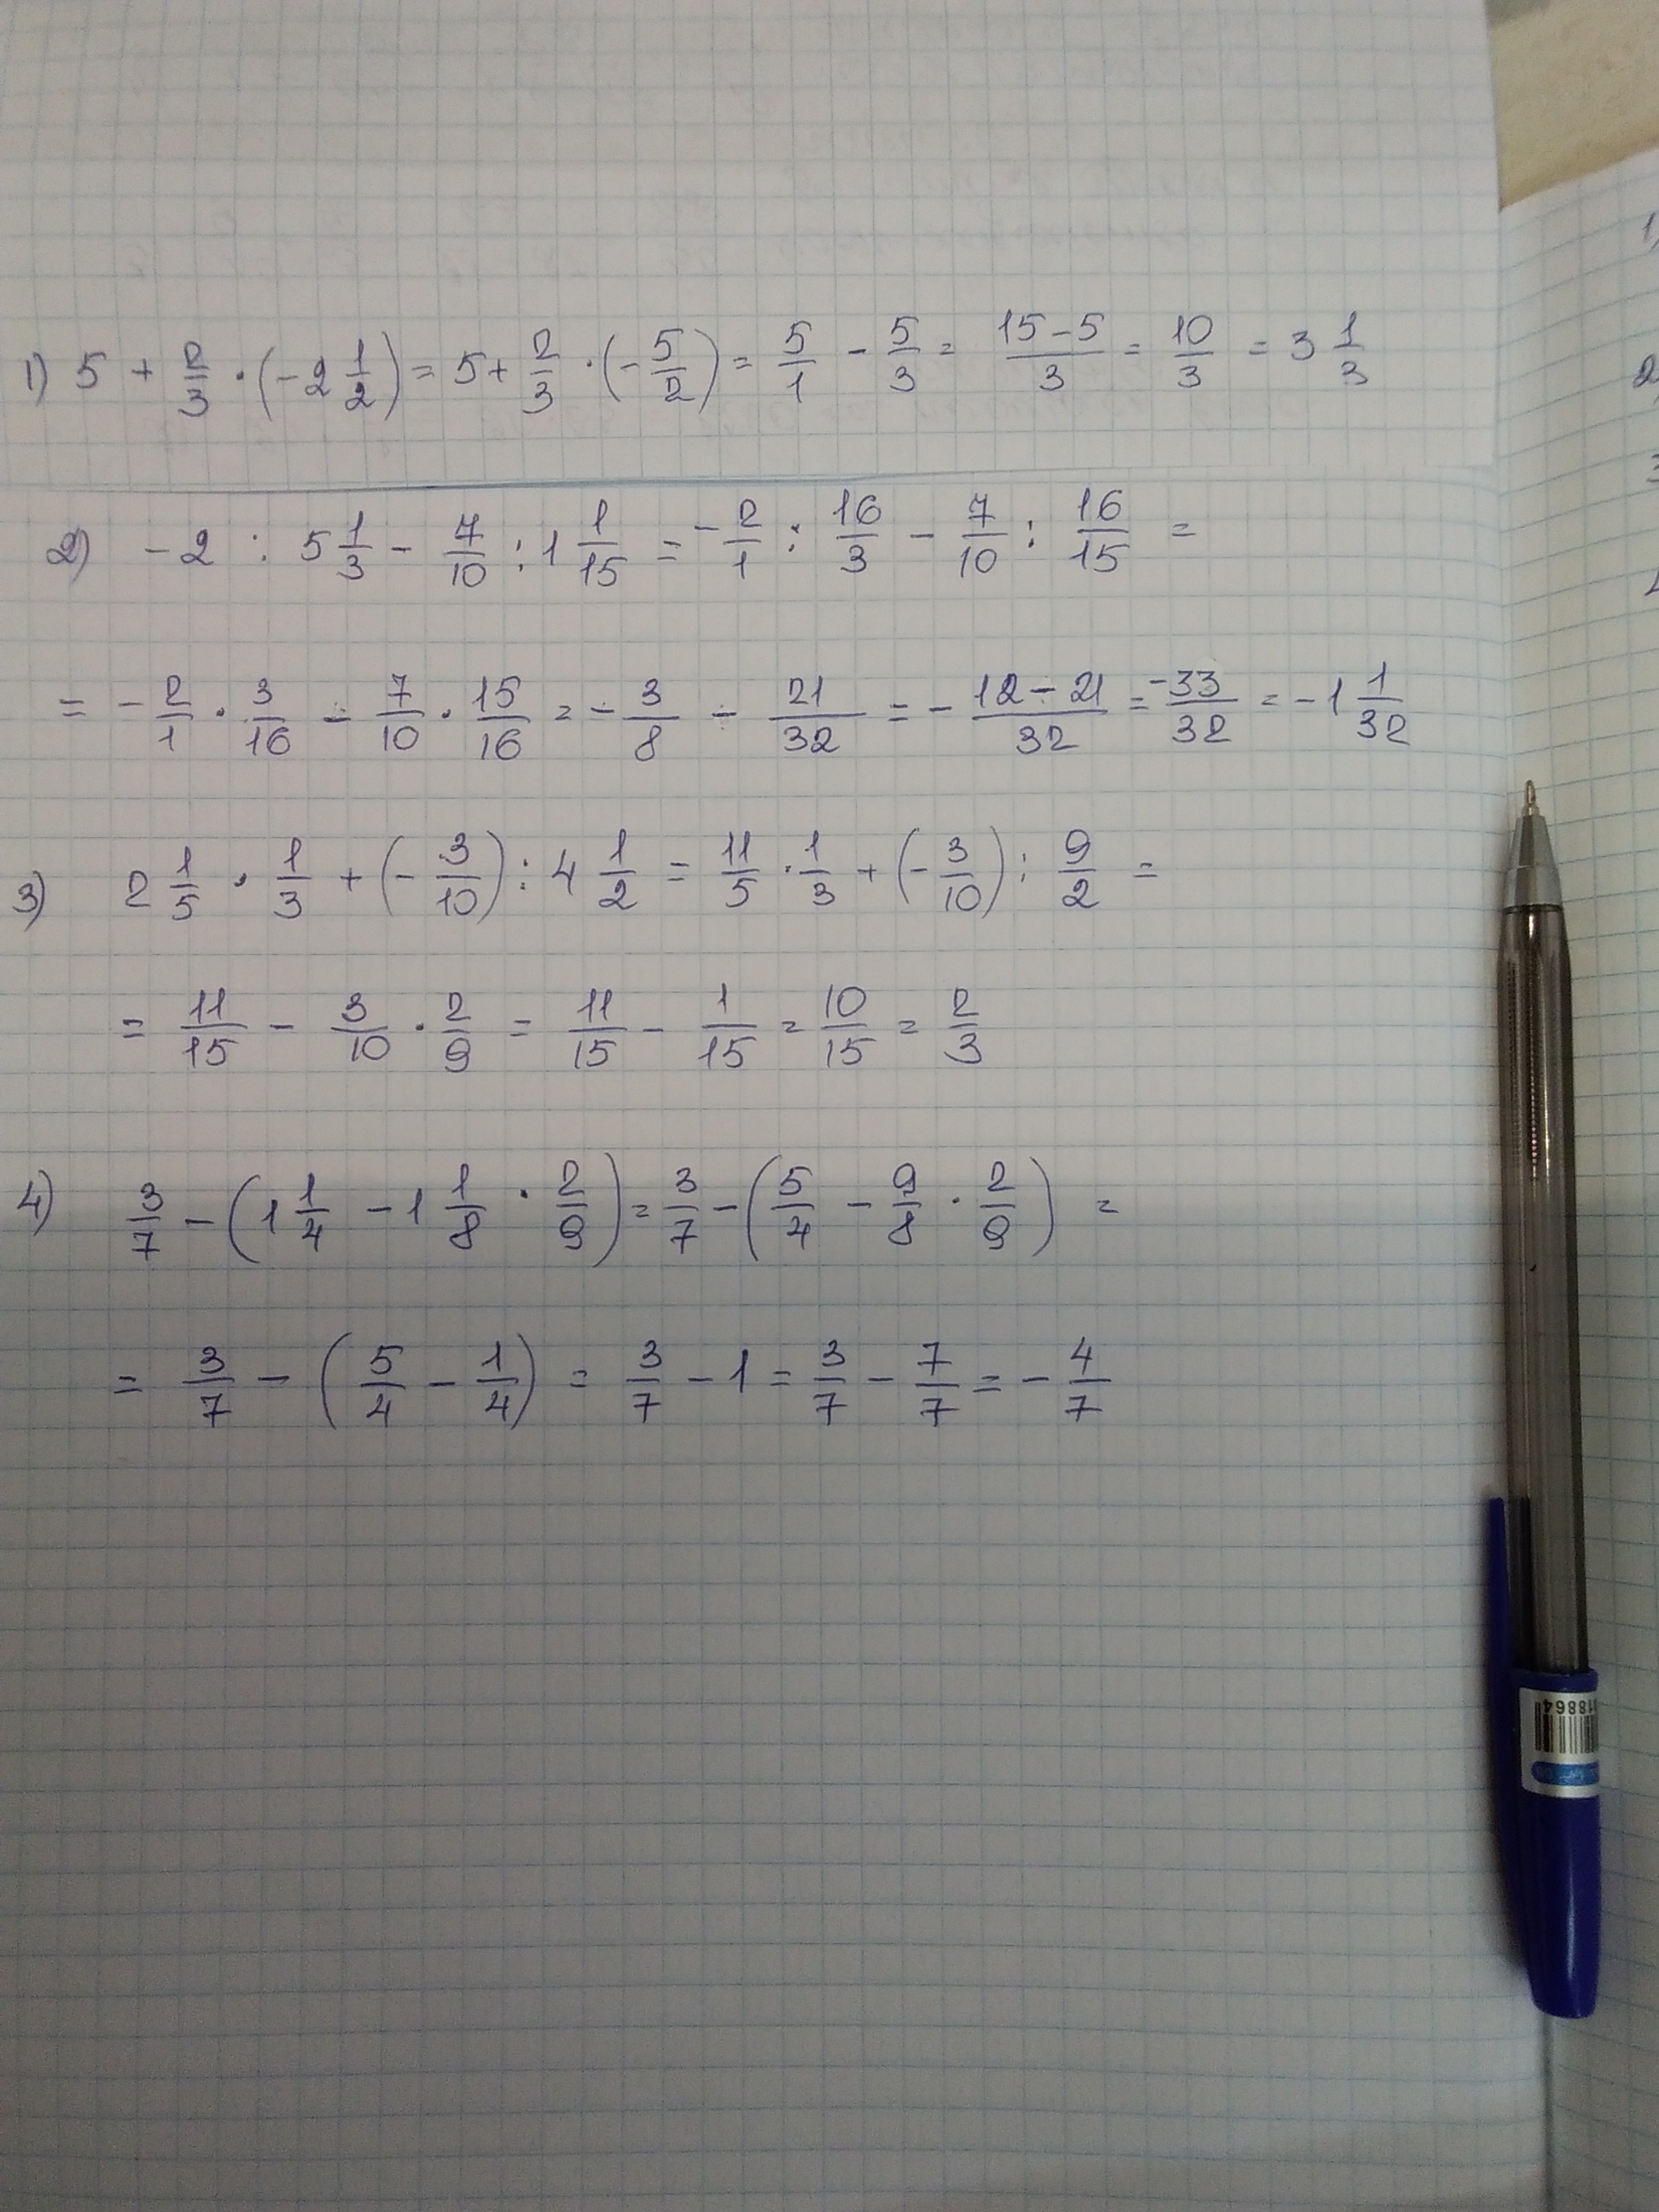 1) 5 + 2/3 · (-2 1/2) = 5 + 2/3 · (-5/2) = 5/1 - 5/3 = (15-5)/3 = 10/3 = 3 1/3
2) -2 : 5 1/3 - 7/10 : 1 1/15 = -2/1 : 16/3 - 7/10 : 16/15 =
= -2/1 · 3/16 - 7/10 · 15/16 = -3/8 - 21/32 = - (12-21)/32 = -33/32 = -1 1/32
3) 2 1/5 · 1/3 + (-3/10) : 4 1/2 = 11/5 · 1/3 + (-3/10) : 9/2 =
= 11/15 - 3/10 · 2/9 = 11/15 - 1/15 = 10/15 = 2/3
4) 3/7 - (1 1/4 - 1 1/8 · 2/9) = 3/7 - (5/4 - 9/8 · 2/9) =
= 3/7 - (5/4 - 1/4) = 3/7 - 1 = 3/7 - 7/7 = -4/7
18864